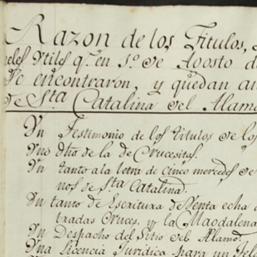 Razon de los Titulos,
peles utiles q.e en 1.o de Agosto d
se encontraron, y quedan an
de S.ta Catalina del Alamo
Un Testimonio de los titulos de los
Uno dho de la de Crucesitas.
Un tanto a la letra de cinco mercedes de
nos de S.ta Catalina.
Un tanto de Escritura de Venta echa
tradas Cruces, y la Magdalena
Un Despacho del Sitio del Alamo.
Una Licencia Juridica para un